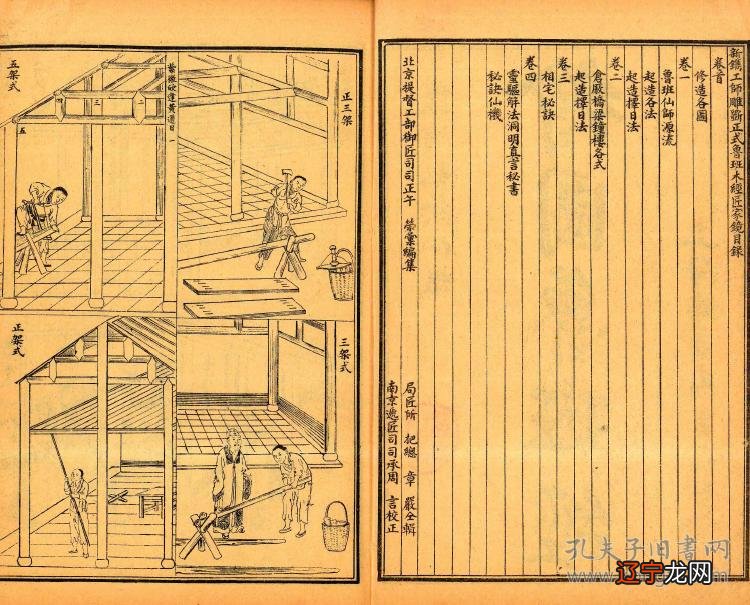 新鐫工師雕斲正式魯班木經匠家鏡目錄
卷首
修造各圖
卷一
魯班仙師源流
起造各法
起造擇日法
卷二
倉厫橋梁鐘樓各式
起造擇日法
卷三
相宅秘訣
卷四
靈驅解法洞明真言秘書
秘訣仙機
北京提督工部御匠司司正午 榮彙編集
局匠所 把總 章 嚴仝輯
南京逓匠司司承周 言校正
正三架
紫微欽遵黃道日 一
二
三
四
五
五架式
三架式
正架式
孔夫子旧書网
辽宁龙网